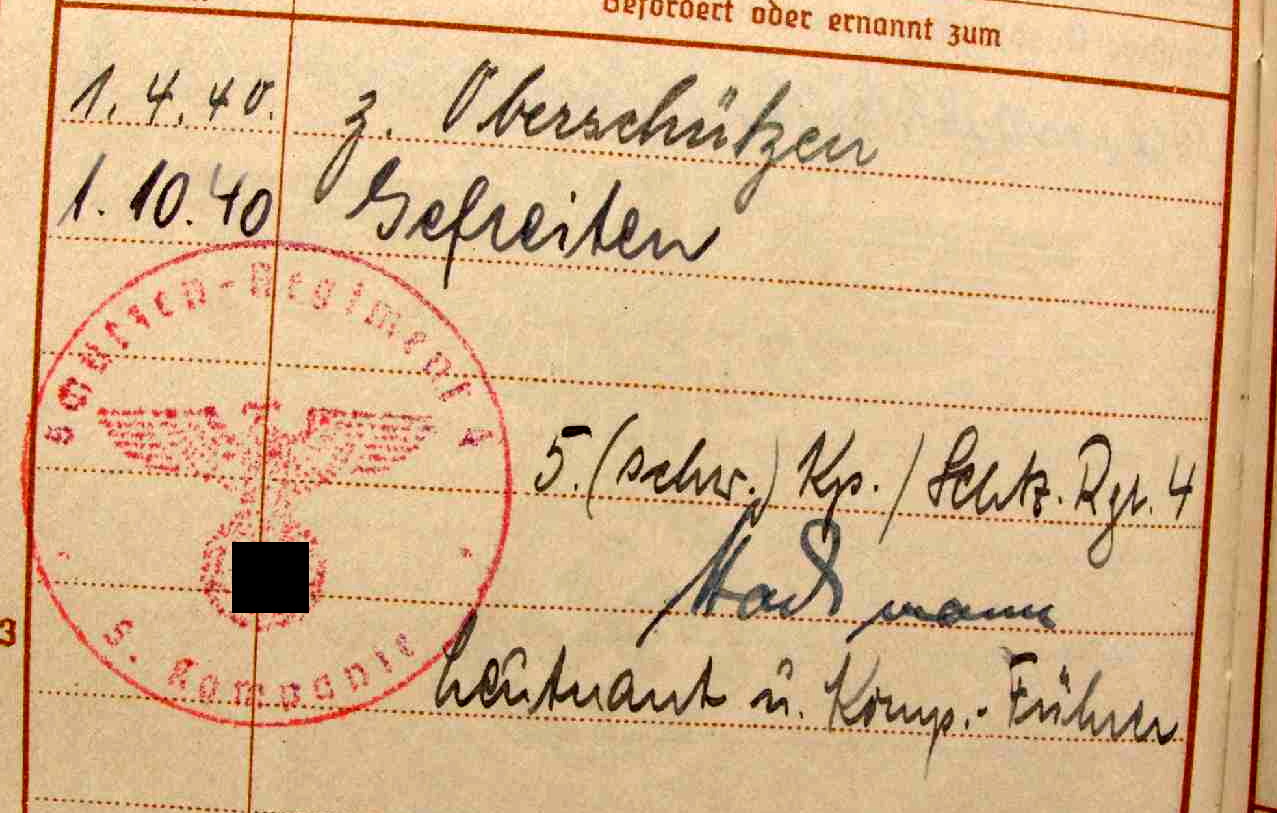 Befördert oder ernannt zum
1.4.40. z. Oberschützen
1.10.40 Gefreiten
Schützen-Regiment 4
5. (schw.) Kp. / Schtz. Rgt. 4
mann
Leutnant u. Komp.-Führer
5. Kompanie
3